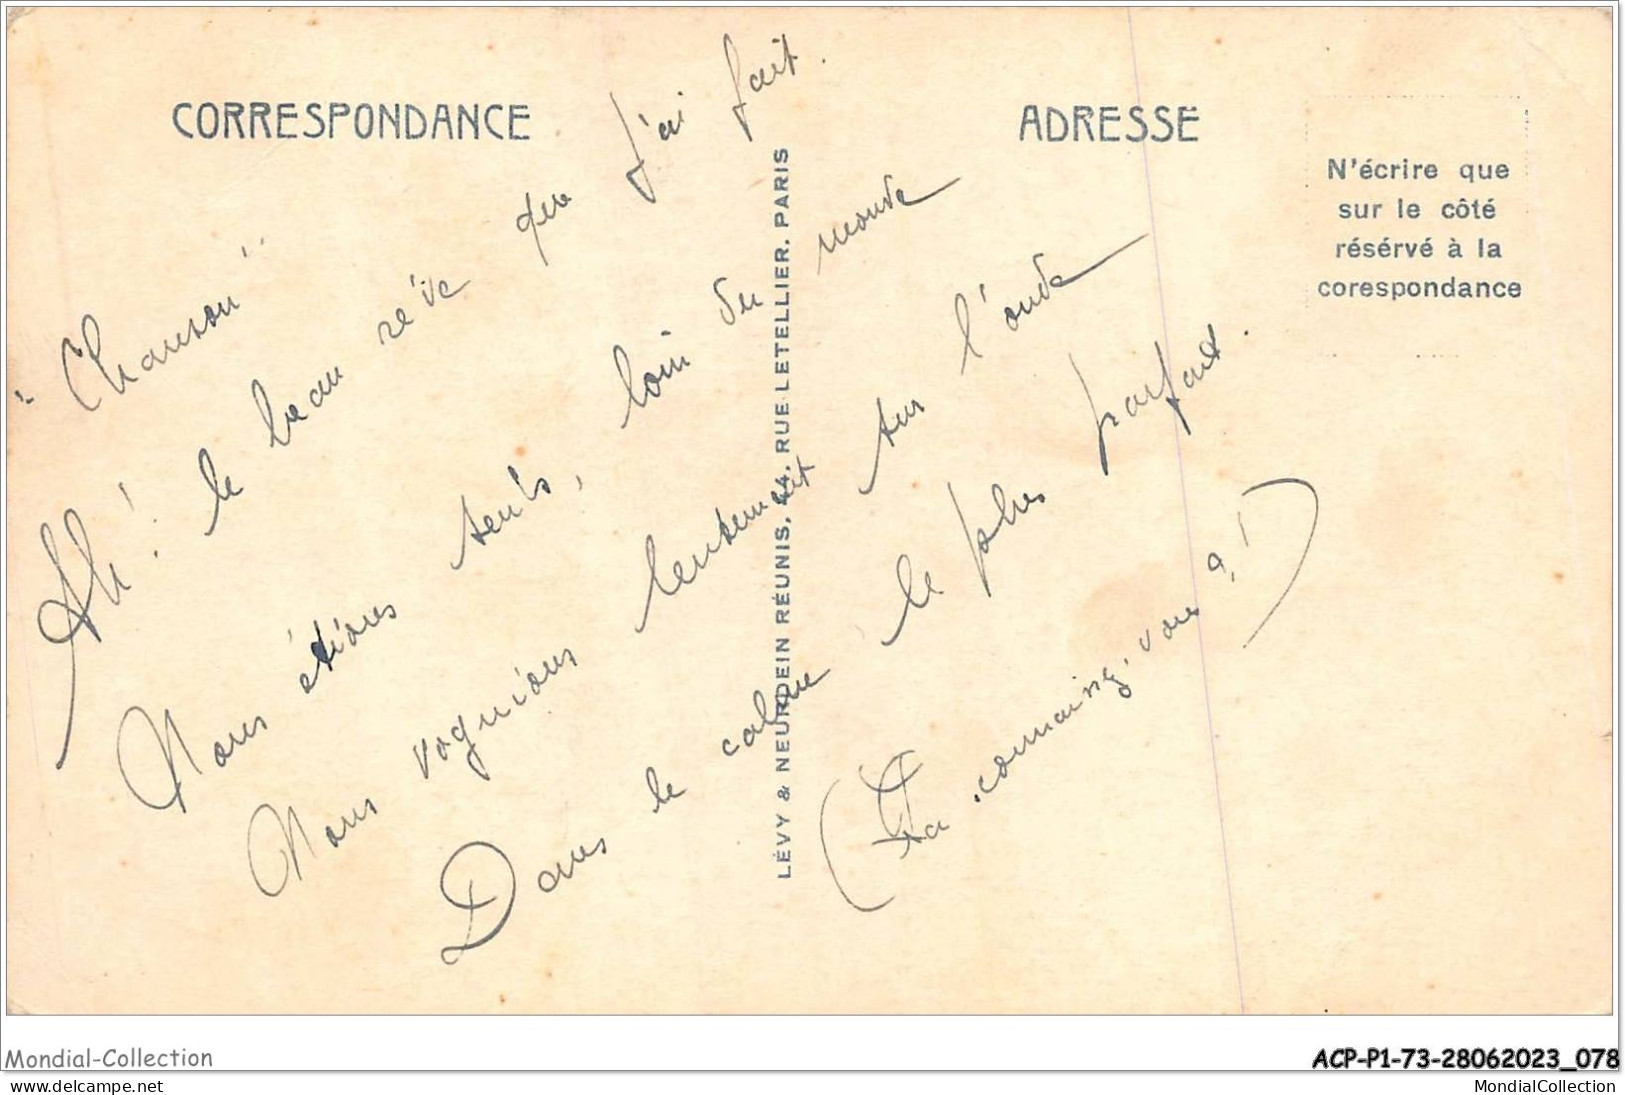 CORRESPONDANCE
ADRESSE
N'écrire que
sur le côté
réservé à la
corespondance
LÉVY & NEURDEIN RÉUNIS, 44, RUE LETELLIER, PARIS
"Chanson"
Ah! le beau rêve que j'ai fait.
Nous étions seuls, loin du monde
Nous voguions lentement sur l'onde
Dans le calme le plus parfait.
(La connaissez-vous?!)
Mondial-Collection
ACP-P1-73-28062023_078
www.delcampe.net
MondialCollection